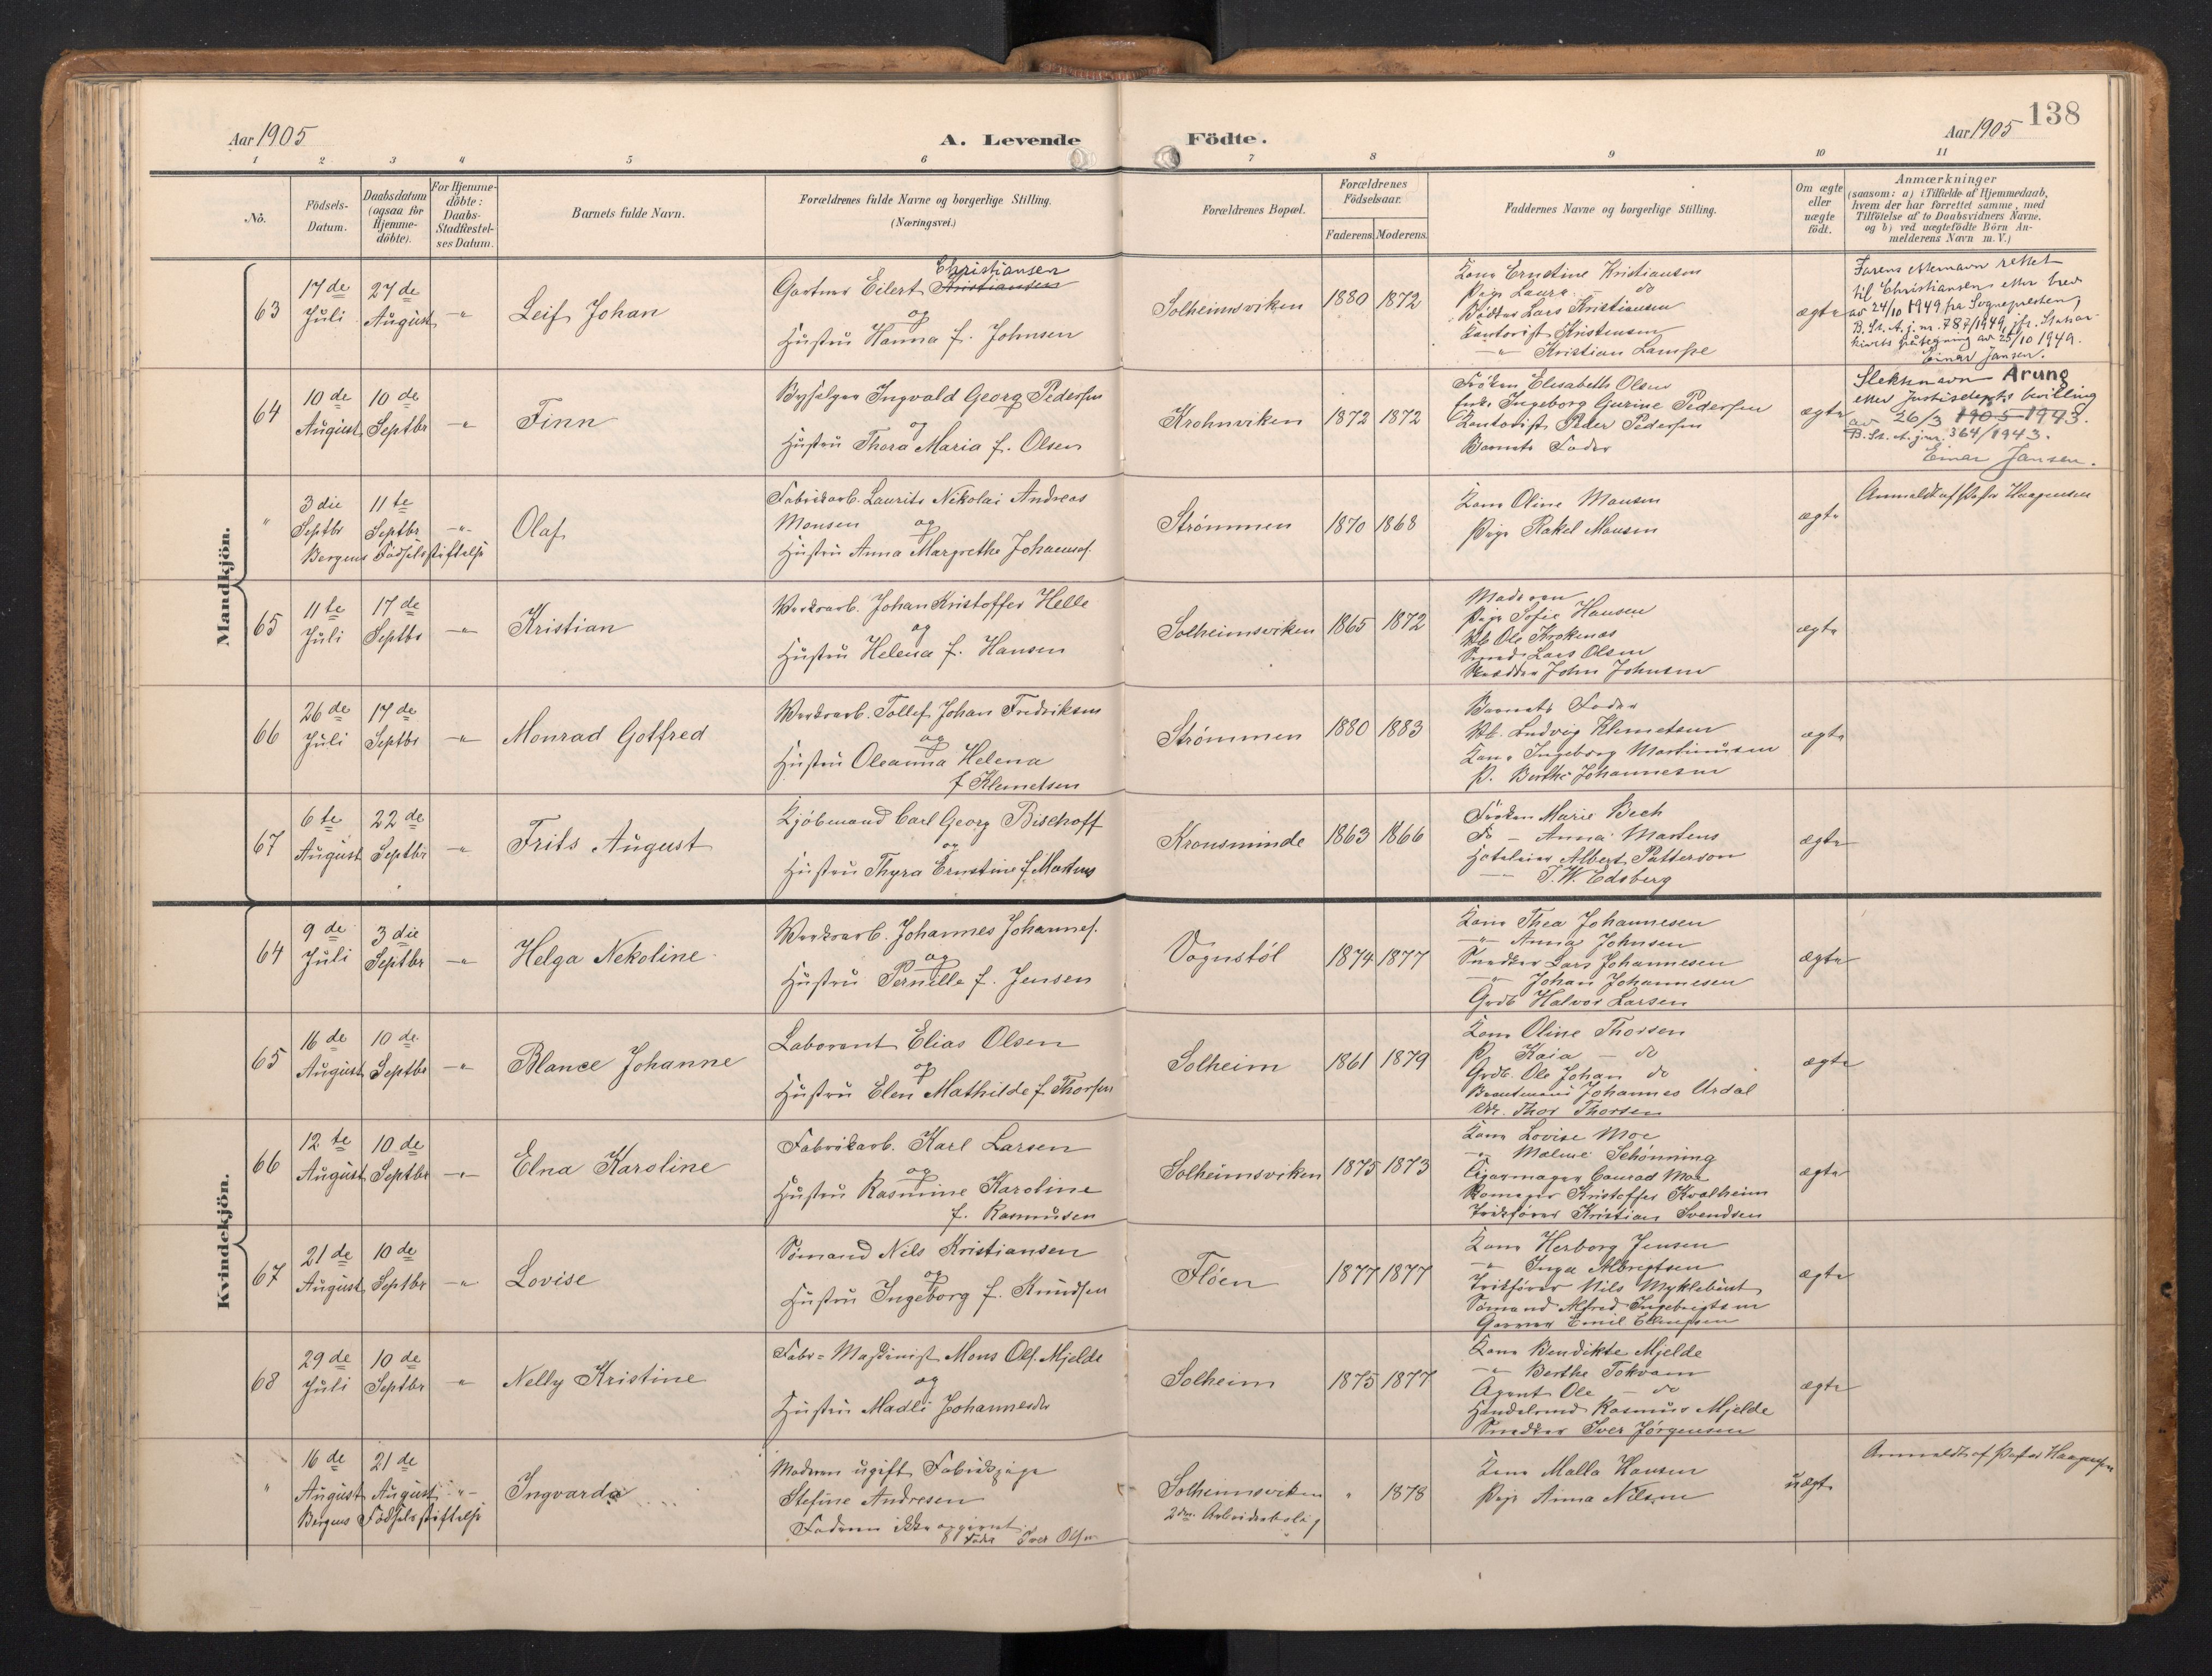 138
Aar 1905
A. Levende Födte.
Aar 1905
1 2 3 4 5 6 7 8 9 10 11
No.
Födsels-
Datum.
Daabsdatum
(ogsaa for
Hjemme-
döbte).
For Hjemme-
döbte:
Daabs-
Stadfæstel-
ses Datum.
Barnets fulde Navn.
Forældrenes fulde Navne og borgerlige Stilling.
(Næringsvei.)
Forældrenes Bopæl.
Forældrenes
Födselsaar.
Faderens. Moderens.
Faddernes Navne og borgerlige Stilling.
Om ægte
eller
uægte
födt.
Anmærkninger
(saasom: a) i Tilfælde af Hjemmedaab,
hvem der har forrettet samme, med
Tilföielse af to Daabsvidners Navne.
og b) ved uægtefödte Börn An-
melderens Navn m. V.)
Mandkjön.
63
17de
Juli
27de
August
"
Leif Johan
Christiansen
Gartner Eilert Kristiansen
og
Hustru Hanna f. Johnsen
Solheimsviken
1880 1872
Kone Ernstine Kristiansen
Pige Laura - do
Bödker Lars Kristiansen
Kontorist Kristensen
" Kristian Lampe
ægte
Farens etternavn rettet
til Christiansen etter brev
av 24/10 1949 fra Sognepresten,
B. St. A. j.nr. 787/1949, jfr. Statsar-
kivets påtegning av 25/10 1949.
Einar Jansen.
64
10de
August
10de
Septbr
"
Finn
Bysælger Ingvald Georg Pedersen
og
Hustru Thora Maria f. Olsen
Krohnviken
1872 1872
Fröken Elisabeth Olsen
Enke Ingeborg Gurine Pedersen
Kontorist Peder Pedersen
Barnets Fader
ægte
Slektsnavn Arung
etter Justisdepts bevilling
av 26/3 1905 1943.
B. St. A. j.nr. 364/1943.
Einar Jansen.
"
3die
Septbr
11te
Septbr
"
Bergens Födselsstiftelse
Olaf
Fabrikarb. Laurits Nikolai Andreas
Monsen og
Hustru Anna Margrethe Johannes.
Strömmen
1870 1868
Kone Oline Monsen
Pige Rakel Monsen
ægte
Anmeldt af Pastor Haagensen
65
11te
Juli
17de
Septbr
"
Kristian
Verksarb. Johan Kristoffer Helle
og
Hustru Helena f. Hansen
Solheimsviken
1865 1872
Moderen
Pige Sofie Hansen
Vb Ole Krokenas
Smed Lars Olsen
Skrædder John Johnsen
ægte
66
26de
Juli
17de
Septbr
"
Monrad Gotfred
Verksarb. Tollef Johan Fredriksen
og
Hustru Oleanna Helena
f Klemetsen
Strömmen
1880 1883
Barnets Fader
Vb. Ludvig Klemetsen
Kone Ingeborg Martinusen
P. Berthe Johannesen
ægte
67
6te
August
22de
Septbr
"
Frits August
Kjöbmand Carl Georg Bischoff
og
Hustru Thyra Ernstine f Martens
Kronsminde
1863 1866
Fröken Marie Bech
Fr - Anna Martens
Hoteleier Albert Patterson
" T. W. Edsberg
ægte
Kvindekjön.
64
9de
Juli
3die
Septbr
"
Helga Nekoline
Verksarb. Johannes Johannes.
og
Hustru Pernille f. Jensen
Vognstöl
1874 1877
Kone Thea Johannesen
" Anna Johnsen
Snedker Lars Johannesen
" Johan Johannesen
Grdb Halvor Larsen
ægte
65
16de
August
10de
Septbr
"
Blance Johanne
Laborant Elias Olsen
og
Hustru Elen Mathilde f Thorsen
Solheim
1861 1879
Kone Oline Thorsen
P. Kaia - do
Grdb. Ole Johan do
Johannes Urdal
Thor Thorsen
ægte
66
12te
August
10de
Septbr
"
Elna Karoline
Fabrikarb. Karl Larsen
og
Hustru Rasmine Karoline
f. Rasmusen
Solheimsviken
1875 1873
Kone Lovise Moe
" Malene Schönning
Cigarmager Conrad Moe
Skomager Kristoffer Kvalheim
Kristian Svendsen
ægte
67
21de
August
10de
Septbr
"
Lovise
Sömand Nils Kristiansen
og
Hustru Ingeborg f. Knudsen
Flöen
1877 1877
Kone Herborg Jensen
" Inga Albregtsen
Nils Myklebust
Sömand Alfred Ingebrigtsen
Garver Emil
ægte
68
29de
Juli
10de
Septbr
"
Nelly Kristine
Fabr= Maskinist Mons Ols. Mjelde
og
Hustru Madli Johannesdr
Solheim
1875 1877
Kone Bendikte Mjelde
" Berthe Tokvam
Agent Ole - do
Handelsmd Rasmus Mjelde
Snedker Iver Jörgensen
ægte
"
16de
August
21de
August
"
Bergens Födselsstiftelse
Ingvarda
Moderen ugift Fabrikpige
Stefine Andresen
Faderen ikke opgivet
Fader Iver Olsen
Solheimsviken
2den Arbeiderbolig
" 1878
Kone Malla Hansen
Pige Anna Nilsen
uægte
Anmeldt af Pastor Haagensen